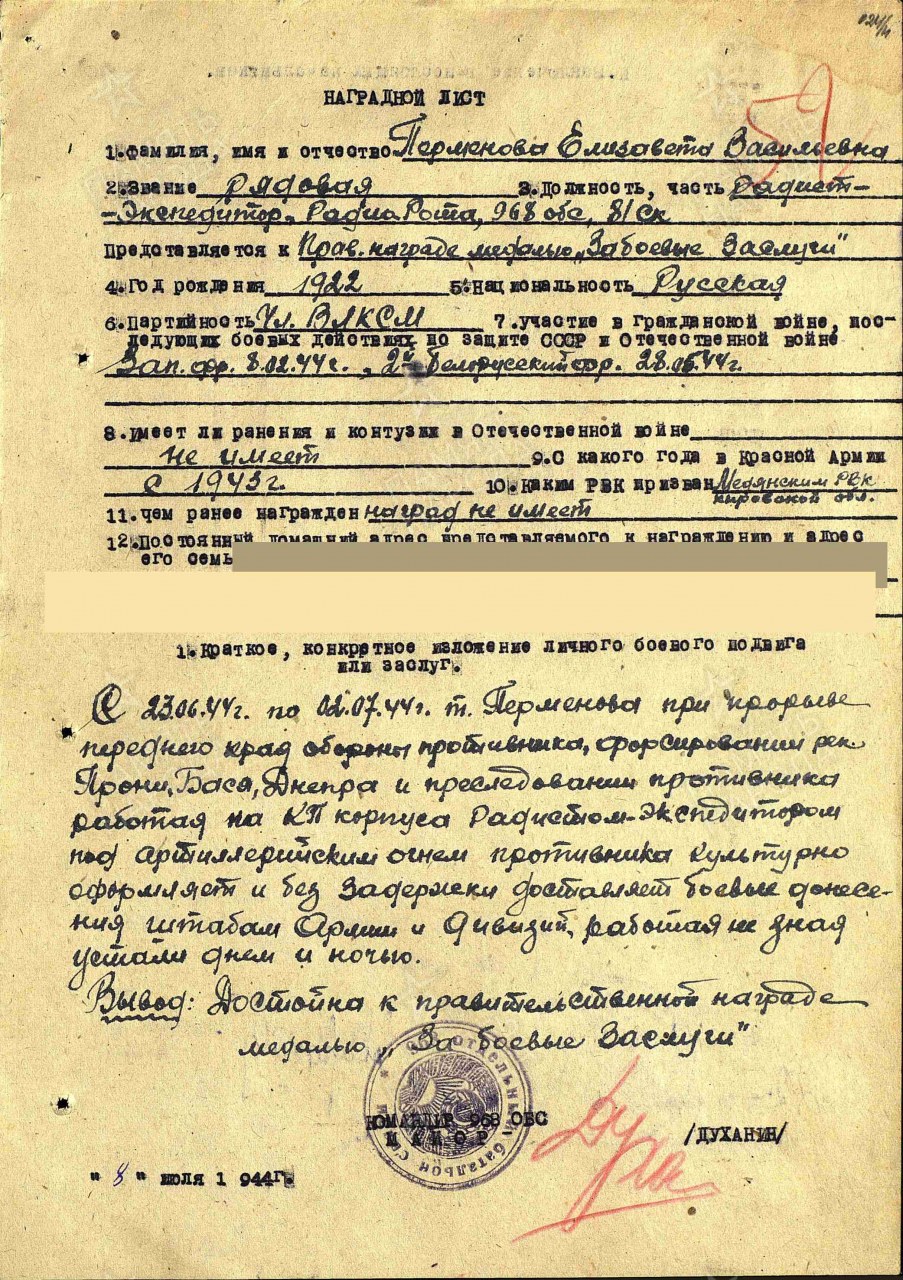 НАГРАДНОЙ ЛИСТ
1.Фамилия, имя и отчество Перменова Елизавета Васильевна
2.Звание рядовая 3.Должность, часть Радист-
-Экспедитор, Радио Рота, 968 обс, 81 ск
Представляется к Прав. награде медалью „За боевые Заслуги"
4.Год рождения 1922 5.Национальность Русская
6.Партийность Чл. ВЛКСМ 7.участие в Гражданской войне, пос-
ледующих боевых действиях по защите СССР и Отечественной войне
Зап. фр. 8.02.44г. , 2й Белорусский фр. 28.05.44г.
8.Имеет ли ранения и контузии в Отечественной войне
не имеет 9.С какого года в Красной Армии
с 1943г. 10.Каким РВК призван Медянским РВК
Кировской обл.
11.чем ранее награжден наград не имеет
12.Постоянный домашний адрес представляемого к награждению и адрес
его семь
1.Краткое, конкретное изложение личного боевого подвига
или заслуг.
С 23.06.44г. по 02.07.44г. т. Перменова при прорыве
переднего края обороны противника, форсировании рек
Прони, Бася, Днепра и преследовании противника
работая на КП корпуса Радистом-Экспедитором
под артиллерийским огнем противника культурно
оформляет и без задержки доставляет боевые донесе-
ния штабам Армии и Дивизий, работая не зная
устали днем и ночью.
Вывод: Достойна к правительственной награде
медалью „За боевые Заслуги"
КОМАНДИР 968 ОБС
МАЙОР /ДУХАНИН/
" 8 " июля 1944г.